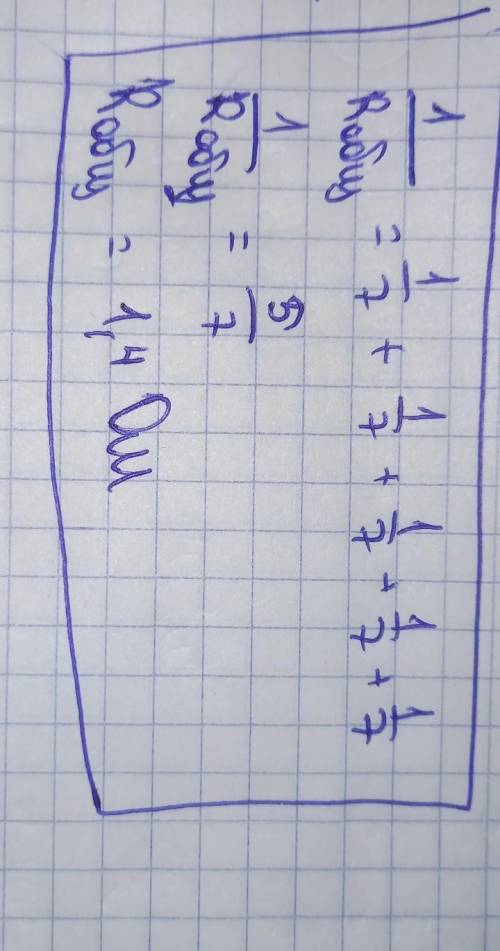 1/Rобщ = 1/7 + 1/7 + 1/7 + 1/7 + 1/7
1/Rобщ = 5/7
Rобщ = 1,4 Ом